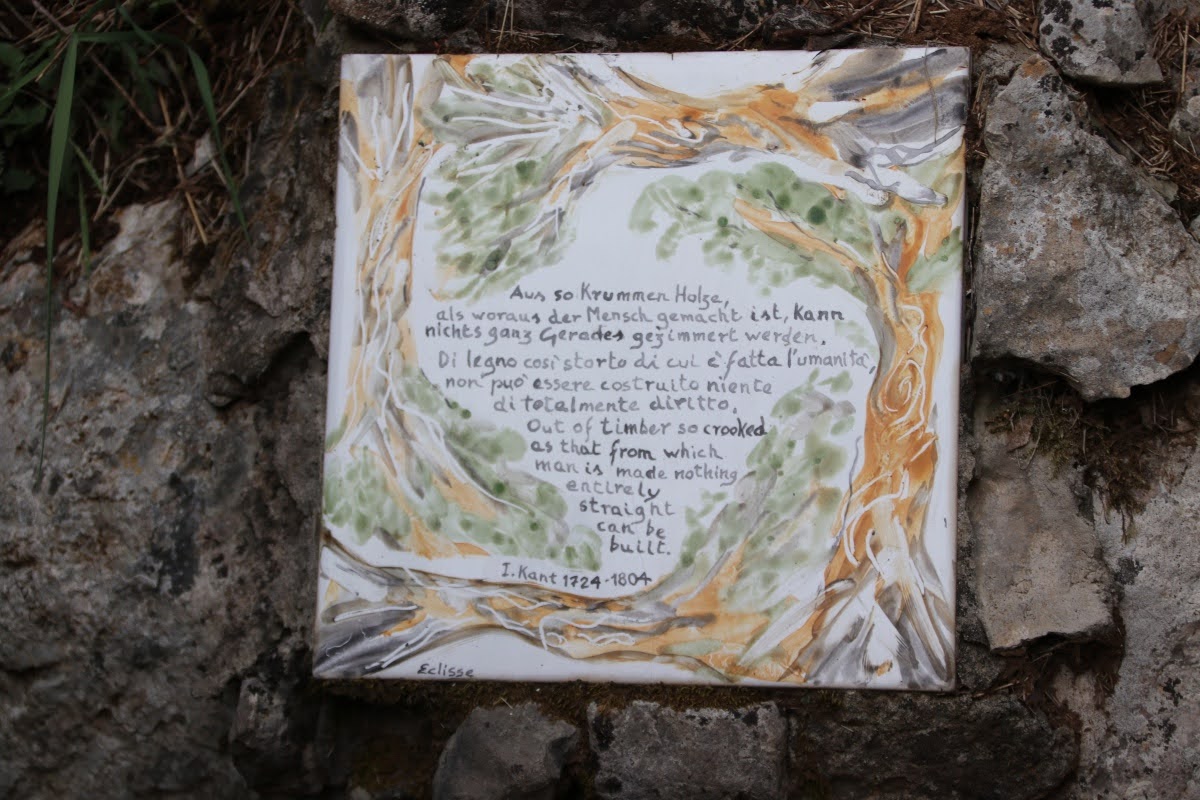 Aus so Krummen Holze,
als woraus der Mensch gemacht ist, kann
nichts ganz Gerades gezimmert werden.
Di legno così storto di cui è fatta l'umanità,
non può essere costruito niente
di totalmente diritto.
Out of timber so crooked
as that from which
man is made nothing
entirely
straight
can be
built.
I. Kant 1724-1804
Eclisse